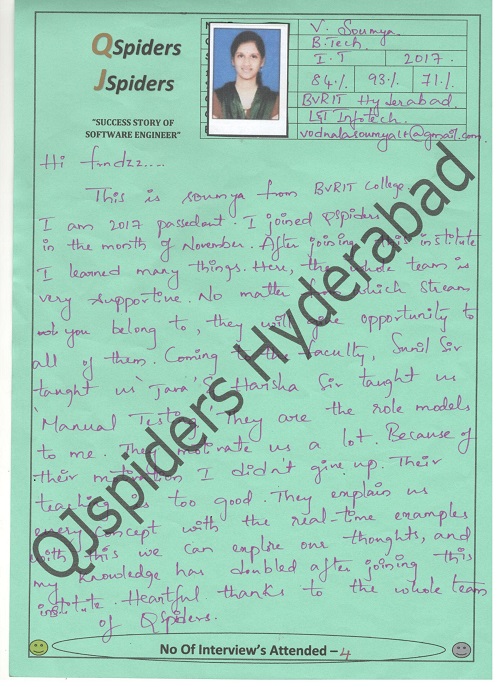 QSpiders
JSpiders
"SUCCESS STORY OF
SOFTWARE ENGINEER"
V. Soumya
B.Tech
I.T 2017
84% 93% 71%
BVRIT Hyderabad
L&T Infotech
Hi frndzz....
This is soumya from BVRIT College.
I am 2017 passedout. I joined Qspiders
in the month of November. After joining this institute
I learned many things. Here, the whole team is
very supportive. No matter from which stream
you belong to, they will give opportunity to
all of them. Coming to the faculty, Sunil Sir
taught us 'Java' & Harisha Sir taught us
'Manual Testing'. They are the role models
to me. They motivate us a lot. Because of
their motivation I didn't give up. Their
teaching is too good. They explain us
every concept with the real-time examples
with this we can explore our thoughts, and
my knowledge has doubled after joining this
institute. Heartful thanks to the whole team
of QSpiders.
No Of Interview's Attended – 4
QJspiders Hyderabad